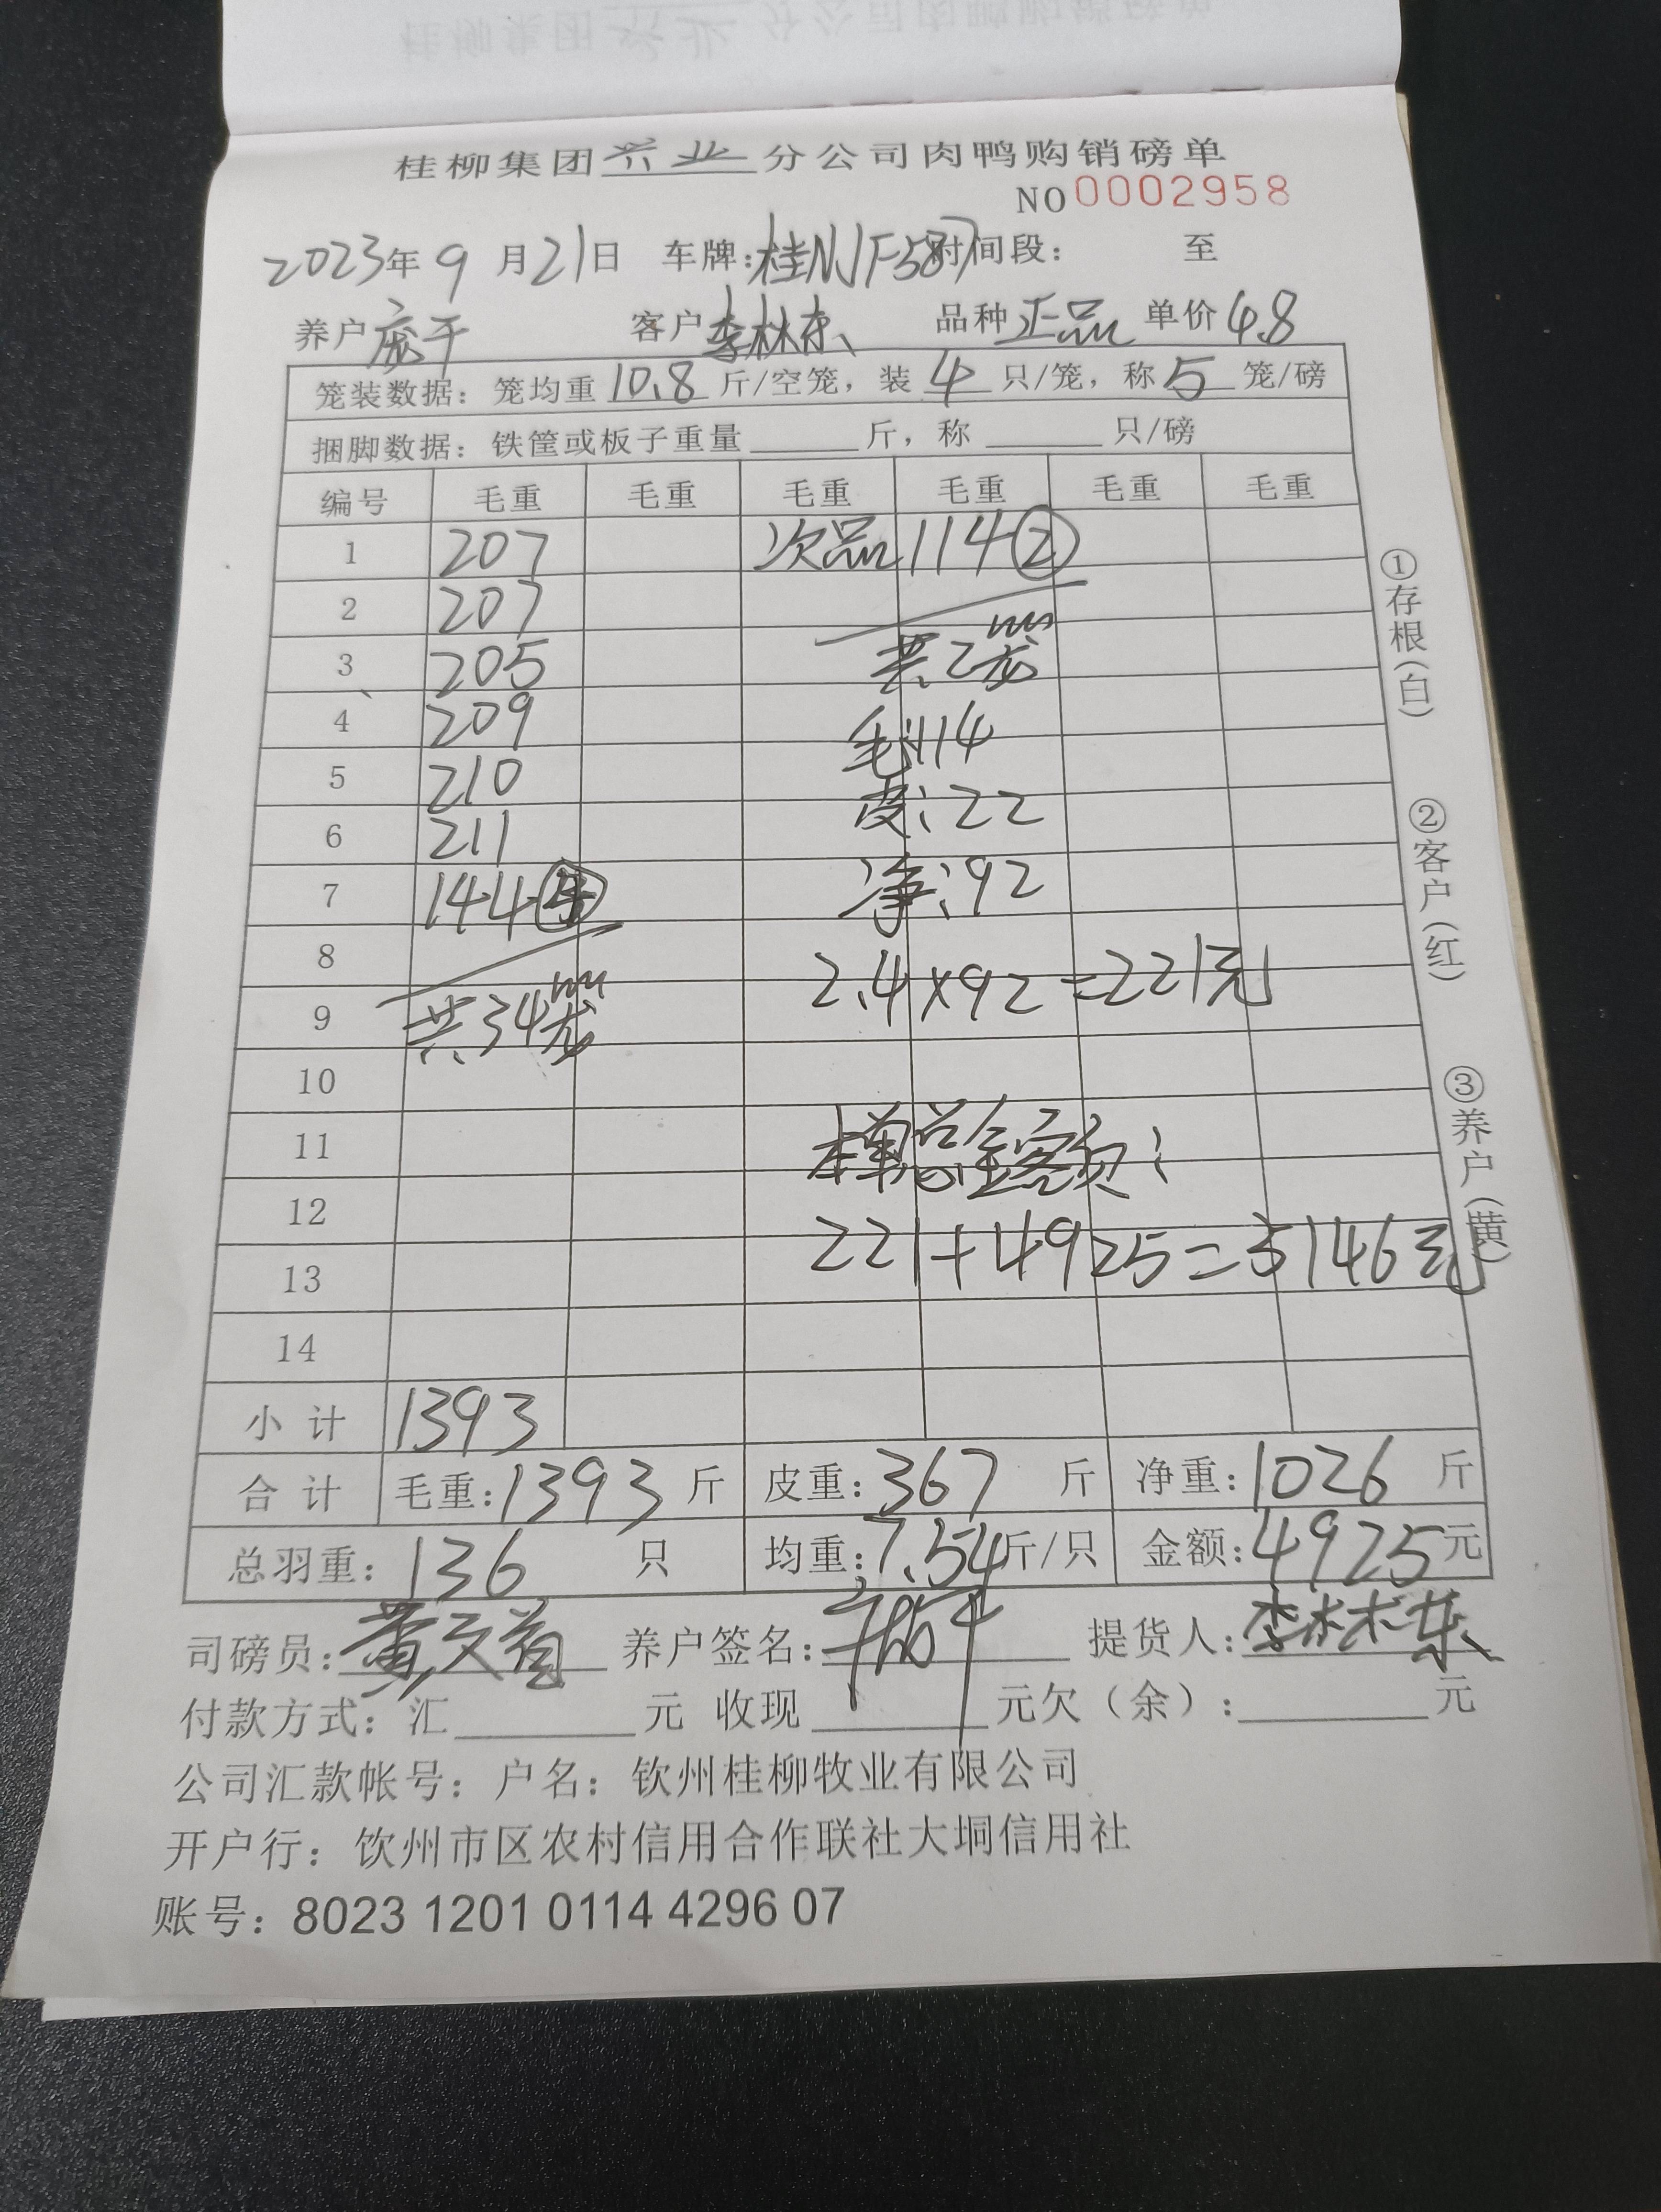 桂柳集团兴业分公司肉鸭购销磅单
NO 0002958
2023年9月21日 车牌:桂NJF587 时间段: 至
养户 庞干 客户 李林东 品种 正品 单价 4.8
笼装数据: 笼均重 10.8 斤/空笼, 装 4 只/笼, 称 5 笼/磅
捆脚数据: 铁筐或板子重量 斤, 称 只/磅
编号 毛重 毛重 毛重 毛重 毛重 毛重
1 207 次品 114②
2 207
3 205 共2笼
4 209 毛:114
5 210 皮:22
6 211 净:92
7 144④
8 2.4×92=221元
9 共34笼
10
11 本单总金额:
12
13 221+4925=5146元
14
小计 1393
合计 毛重:1393斤 皮重:367斤 净重:1026斤
总羽重:136只 均重:7.54斤/只 金额:4925元
司磅员:黄文首 养户签名: 提货人:李林东
付款方式: 汇 元 收现 元欠(余): 元
公司汇款帐号: 户名: 钦州桂柳牧业有限公司
开户行: 钦州市区农村信用合作联社大垌信用社
账号: 8023 1201 0114 4296 07
①存根(白)
②客户(红)
③养户(黄)